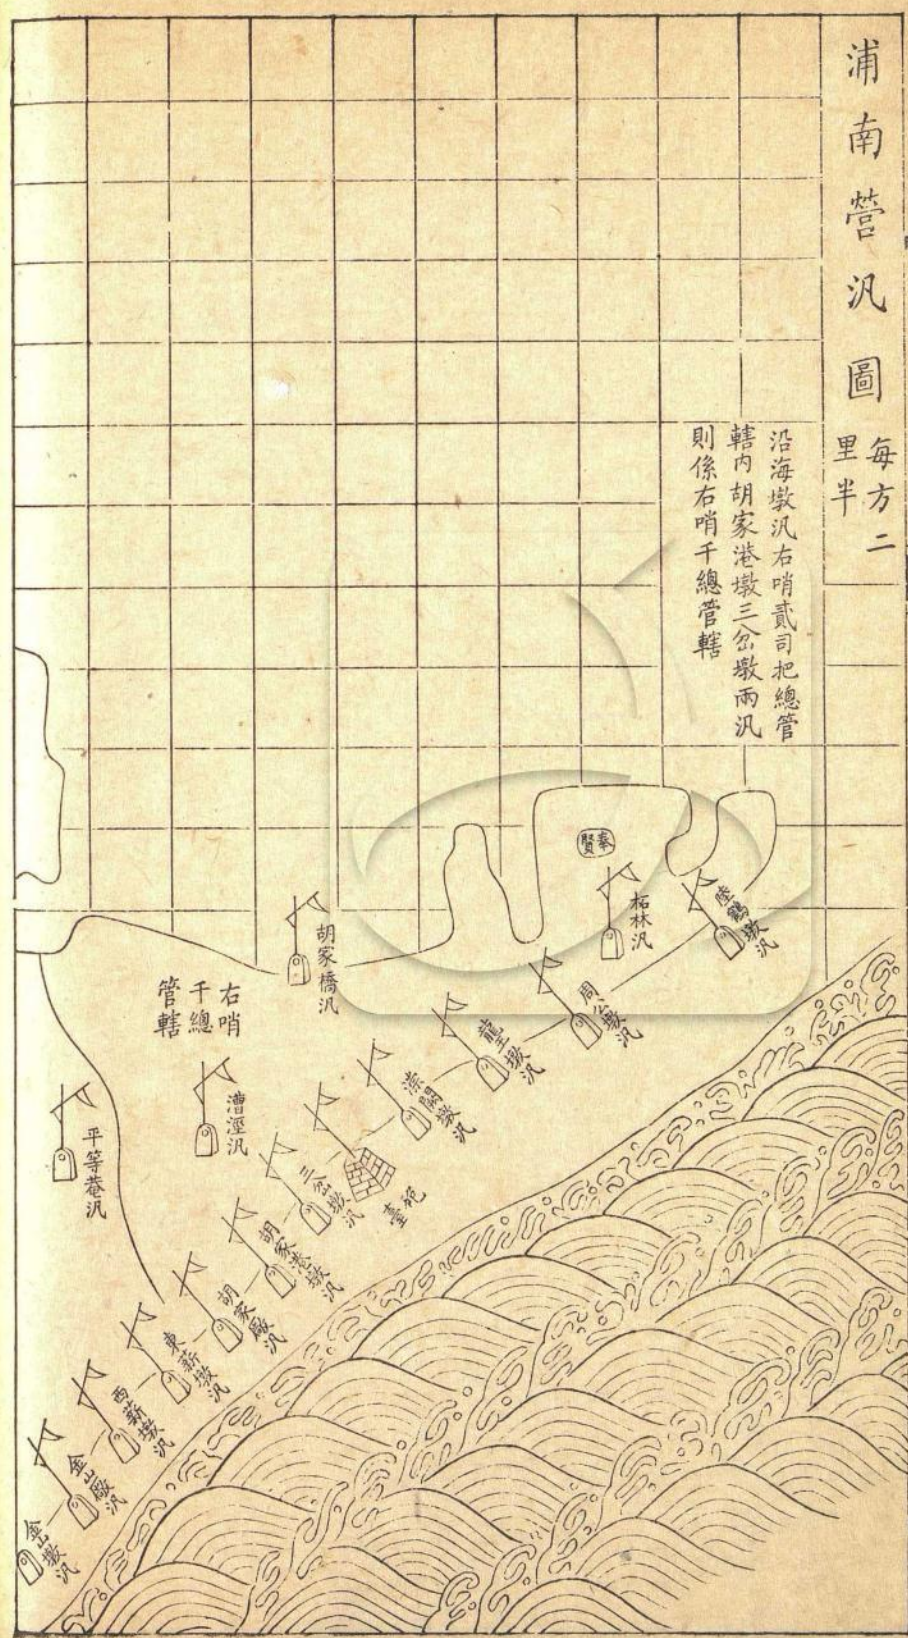 浦南營汛圖
每方二
里半
沿海墩汛右哨貳司把總管
轄内胡家港墩三岔墩兩汛
則係右哨千總管轄
奉賢
陸鶴墩汛
柘林汛
周公墩汛
龍王墩汛
漴闕墩汛
胡家橋汛
右哨
千總
管轄
漕涇汛
平等菴汛
砲臺
三岔墩汛
胡家港墩汛
胡家厰汛
東新墩汛
西新墩汛
金山厰汛
金山墩汛